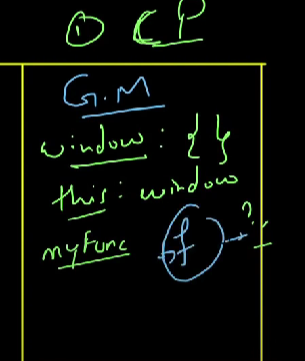 ① CP
G.M
window : { }
this : window
myFunc f → ?